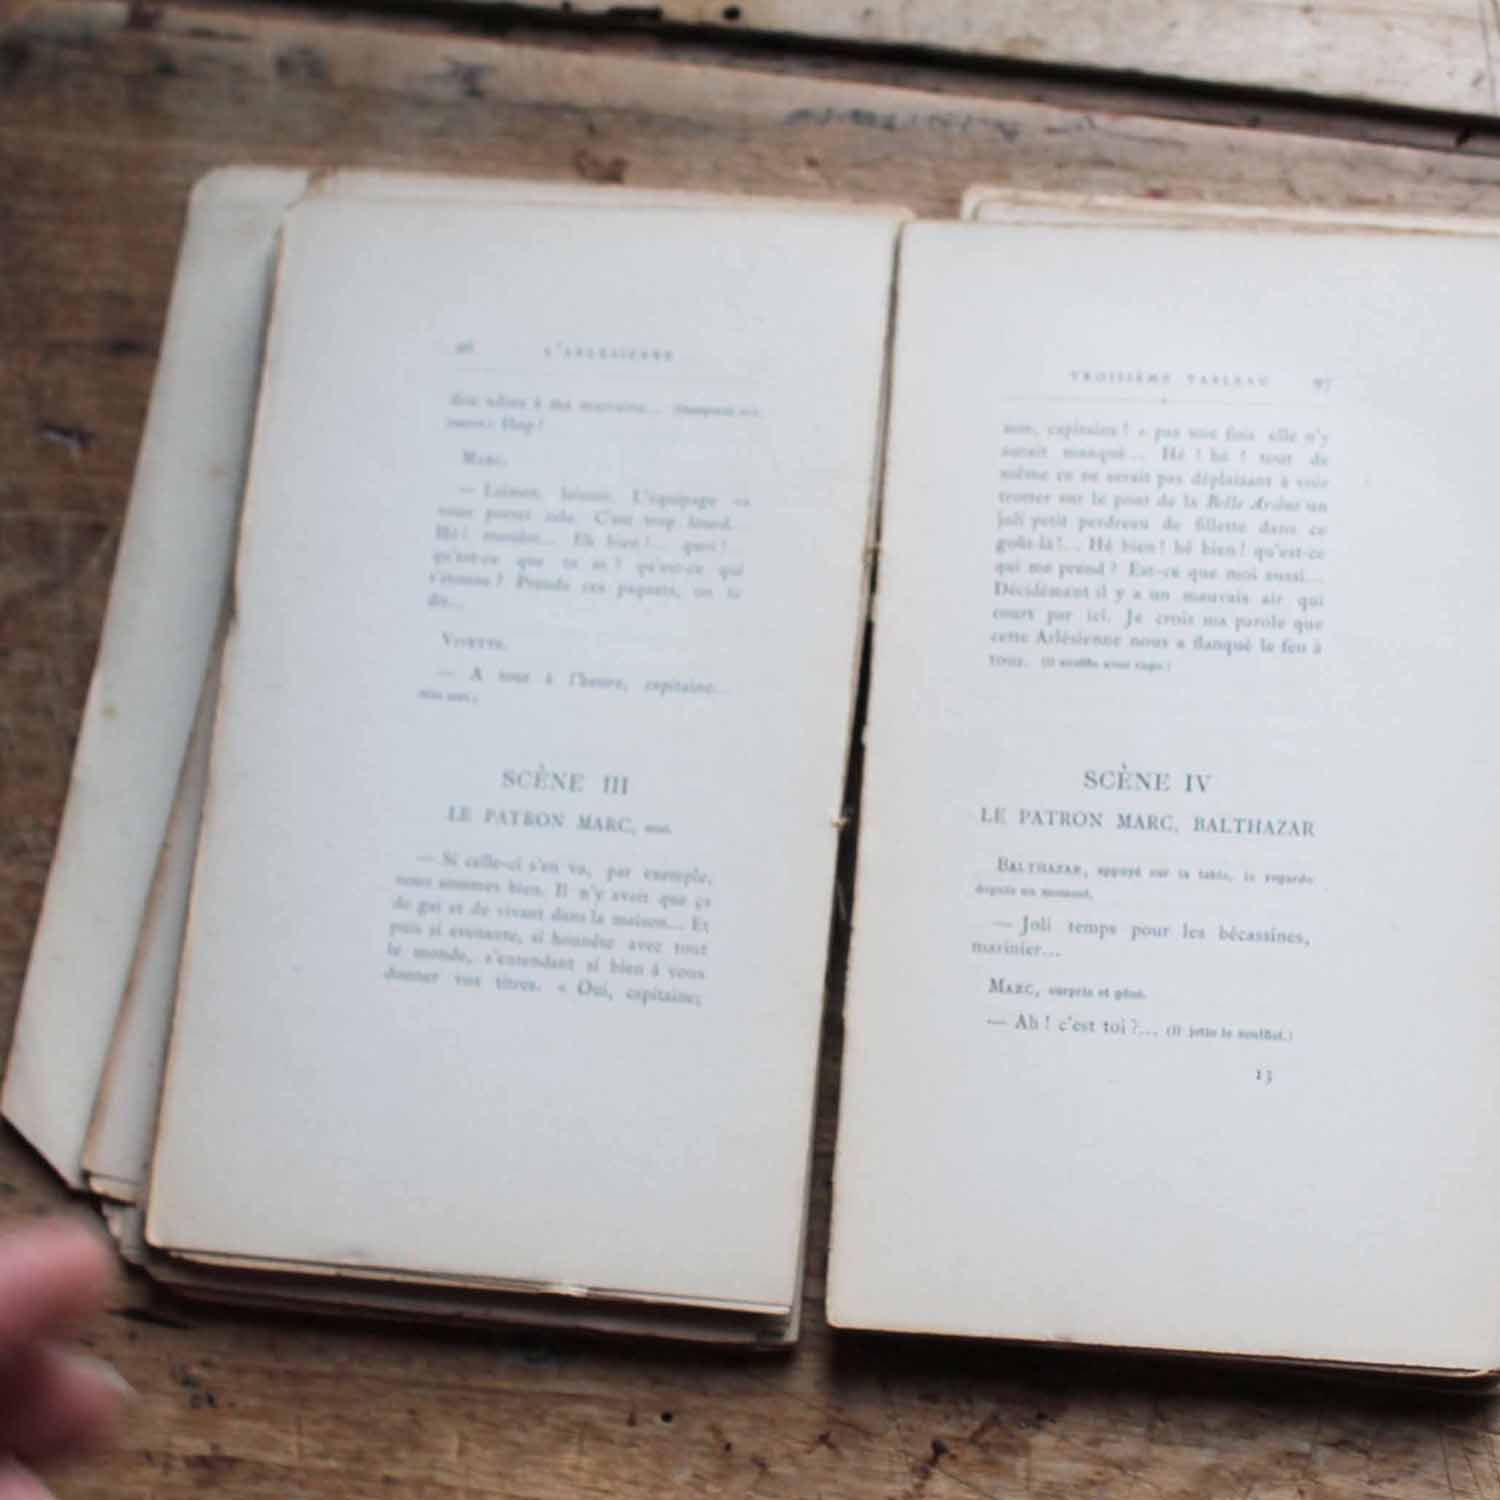 96 L'ARLÉSIENNE
dire adieu à ma marraine...
Hop!
MARC.
— Laissez, laissez. L'équipage va
nous porter cela. C'est trop lourd...
Hé! matelot... Eh bien!... quoi!...
qu'est-ce que tu as? qu'est-ce qui
t'étonne? Prends ces paquets, on te
dit...
VIVETTE.
— A tout à l'heure, capitaine...
SCÈNE III
LE PATRON MARC, seul.
— Si celle-ci s'en va, par exemple,
nous sommes bien. Il n'y avait que ça
de gai et de vivant dans la maison... Et
puis si avenante, si honnête avec tout
le monde, s'entendant si bien à vous
donner vos titres. « Oui, capitaine;
TROISIÈME TABLEAU 97
non, capitaine! » pas une fois elle n'y
aurait manqué... Hé! hé! tout de
même ce ne serait pas déplaisant à voir
trotter sur le pont de la Belle Arsène un
joli petit perdreau de fillette dans ce
goût-là!... Hé bien! hé bien! qu'est-ce
qui me prend? Est-ce que moi aussi...
Décidément il y a un mauvais air qui
court par ici. Je crois ma parole que
cette Arlésienne nous a flanqué le feu à
tous. (Il souffle avec rage.)
SCÈNE IV
LE PATRON MARC, BALTHAZAR
BALTHAZAR, appuyé sur la table, le regarde
depuis un moment.
— Joli temps pour les bécassines,
marinier...
MARC, surpris et gêné.
— Ah! c'est toi?... (Il jette le soufflet.)
13